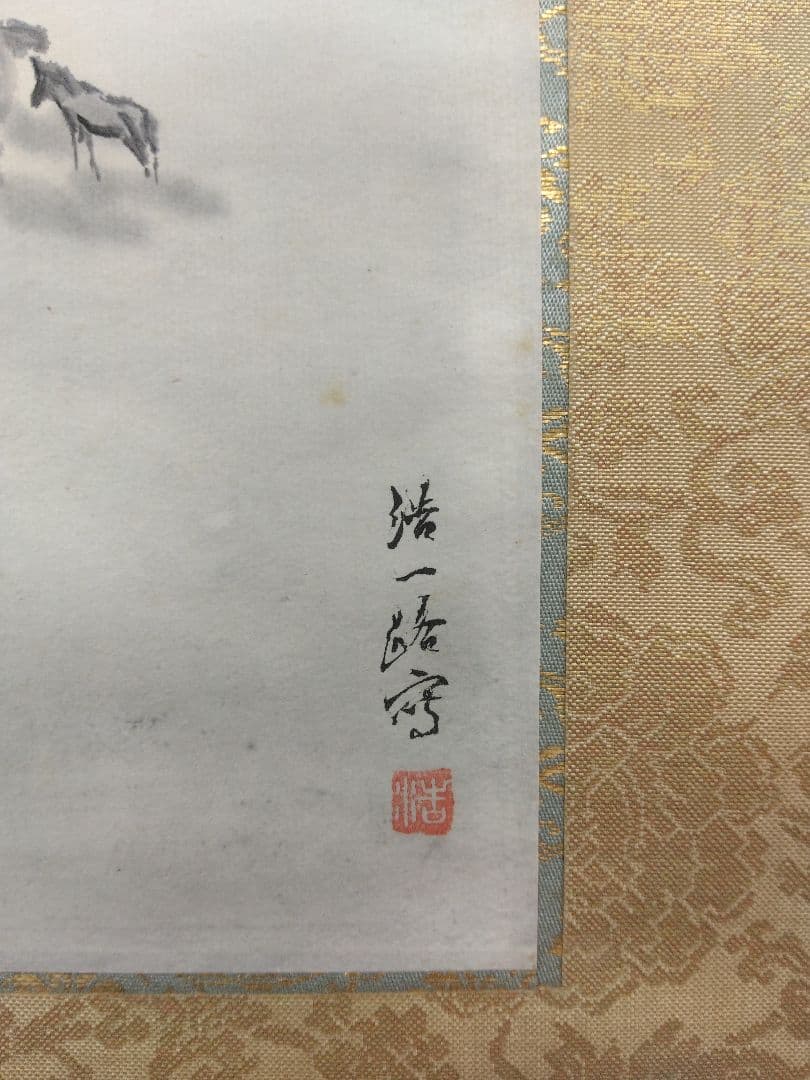 浩一路寫
浩